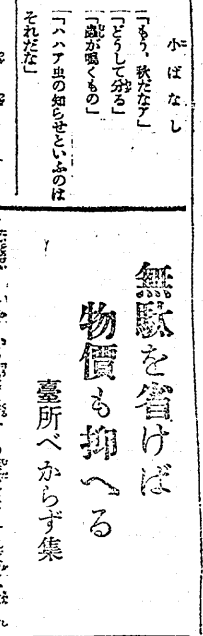 小ばなし
「もう、秋だなア」
「どうして分る」
「蟲が鳴くもの」
「ハハア虫の知らせといふのは
それだな」
無駄を省けば
物價も抑へる
臺所べからず集